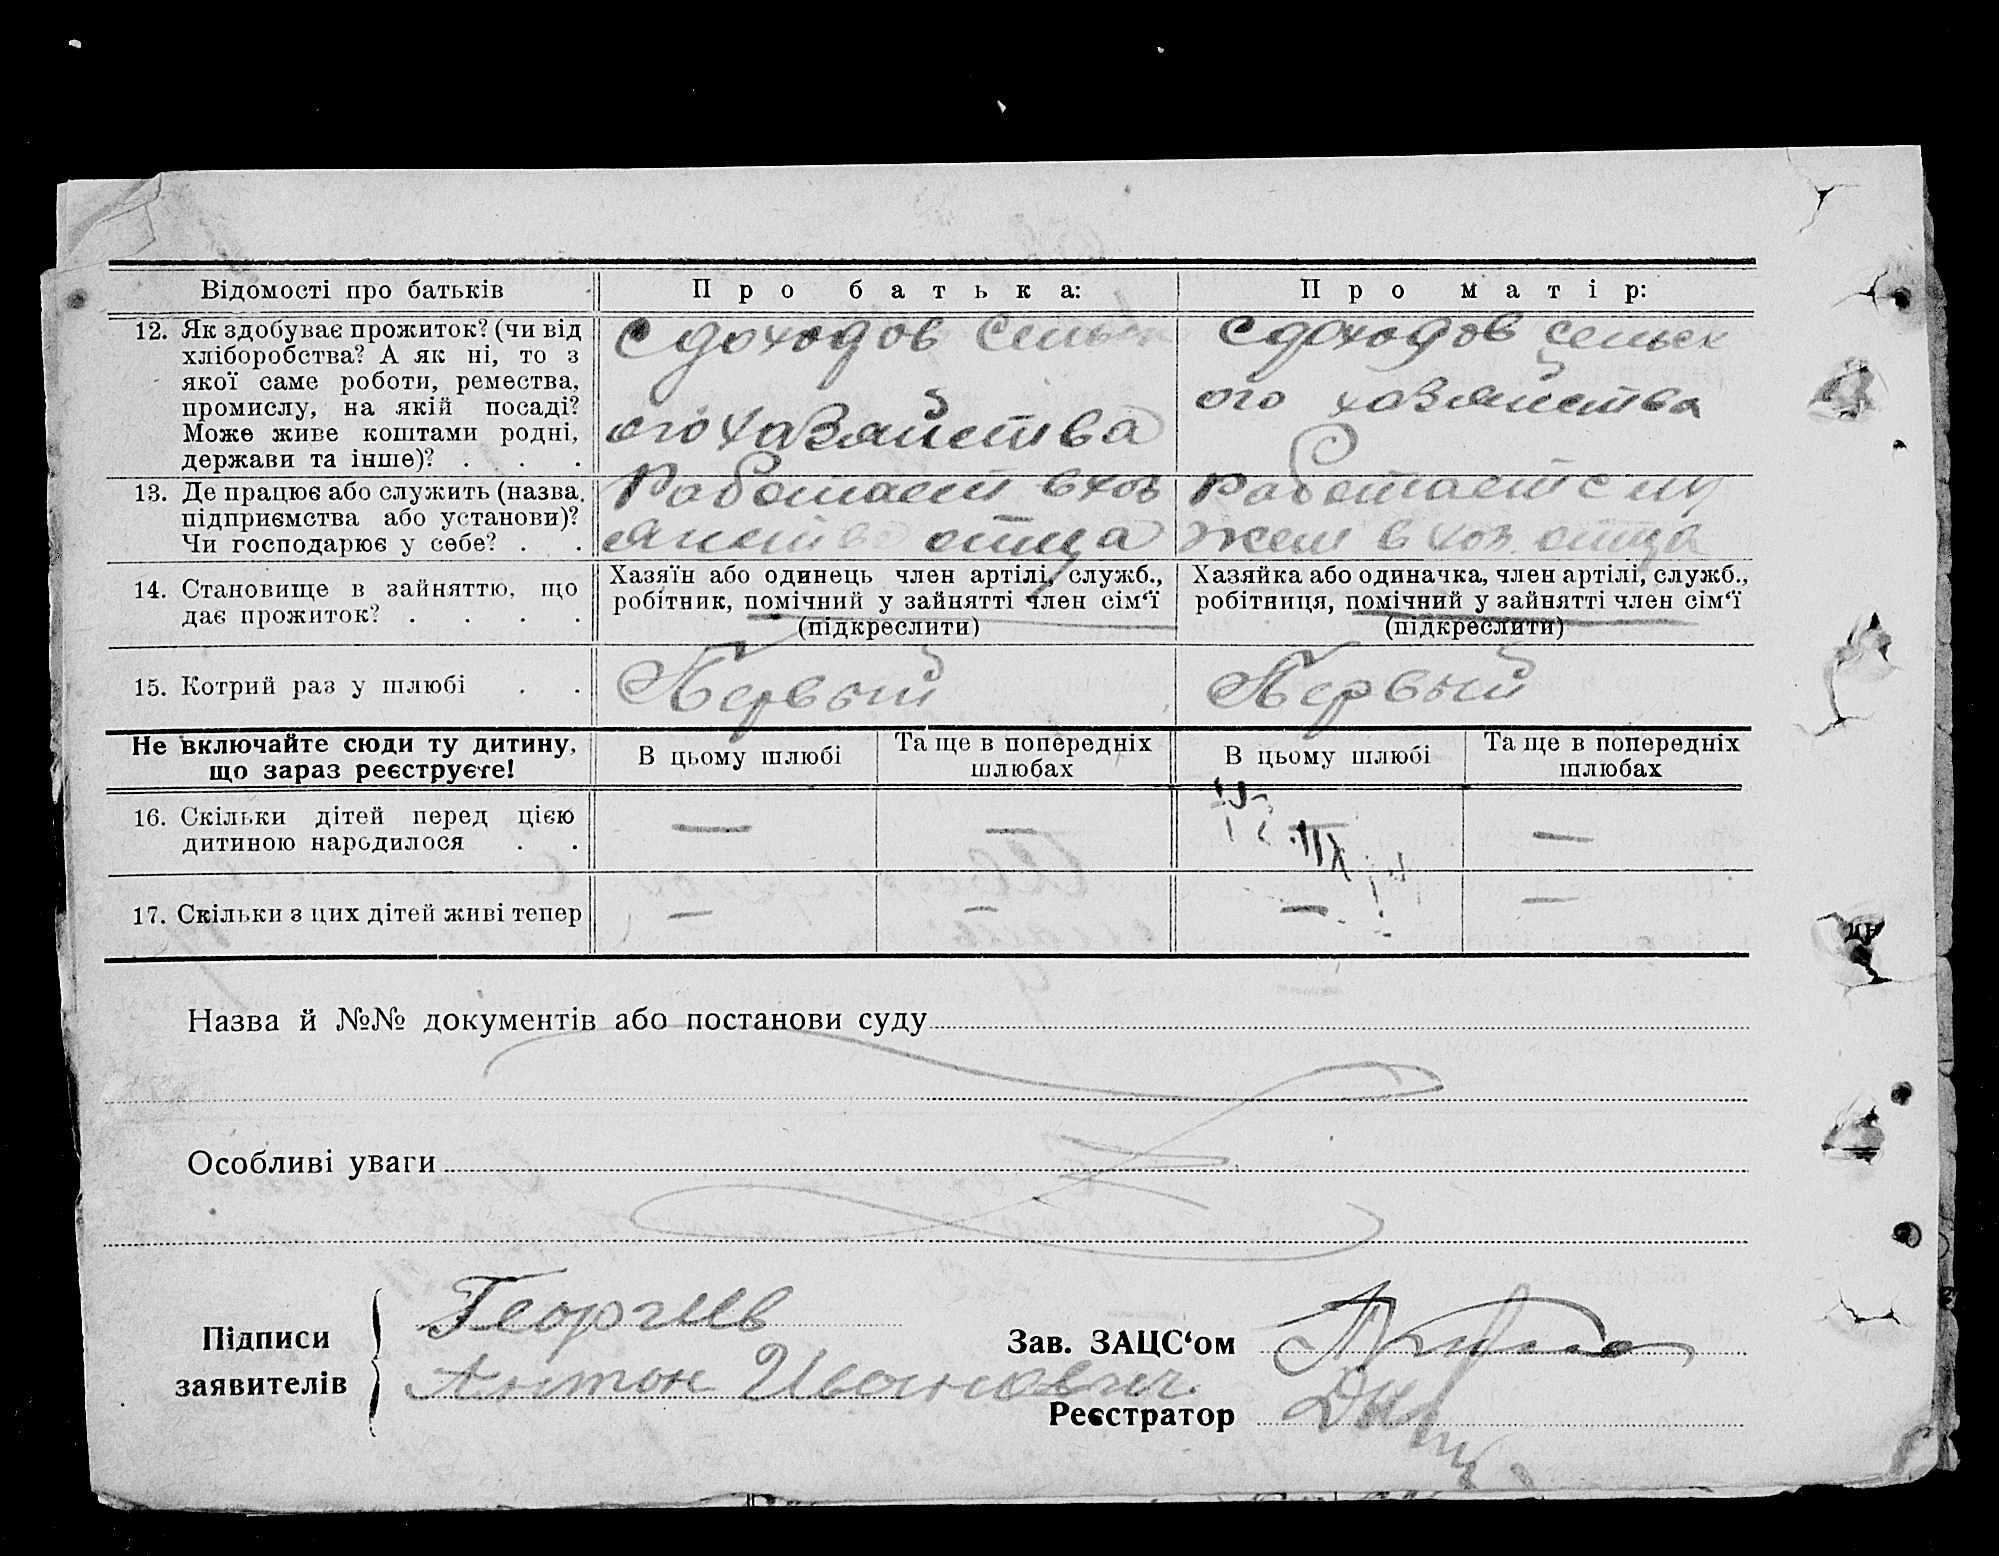 Відомості про батьків
Про батька:
Про матір:
12. Як здобуває прожиток? (чи від
хліборобства? А як ні, то з
якої саме роботи, ремества,
промислу, на якій посаді?
Може живе коштами родні,
держави та інше)? . . .
с доходов сельск
ого хазяйства
с доходов сельск
ого хазяйства
13. Де працює або служить (назва,
підприємства або установи)?
Чи господарює у себе? . .
Работает в хоз
яйстве отца
Работает с му
жем в хоз. отца
14. Становище в зайняттю, що
дає прожиток? . . . .
Хазяїн або одинець член артілі, служб.,
робітник, помічний у зайнятті член сім‘ї
(підкреслити)
Хазяйка або одиначка, член артілі, служб.,
робітниця, помічний у зайнятті член сім‘ї
(підкреслити)
15. Котрий раз у шлюбі . .
Первый
Первый
Не включайте сюди ту дитину,
що зараз реєструєте!
В цьому шлюбі
Та ще в попередніх
шлюбах
В цьому шлюбі
Та ще в попередніх
шлюбах
16. Скільки дітей перед цією
дитиною народилося . .
— — — —
17. Скільки з цих дітей живі тепер
— — — —
Назва й №№ документів або постанови суду
Особливі уваги
Підписи
заявителів
Георгиев
Антон Иванович
Зав. ЗАЦС‘ом
Реєстратор